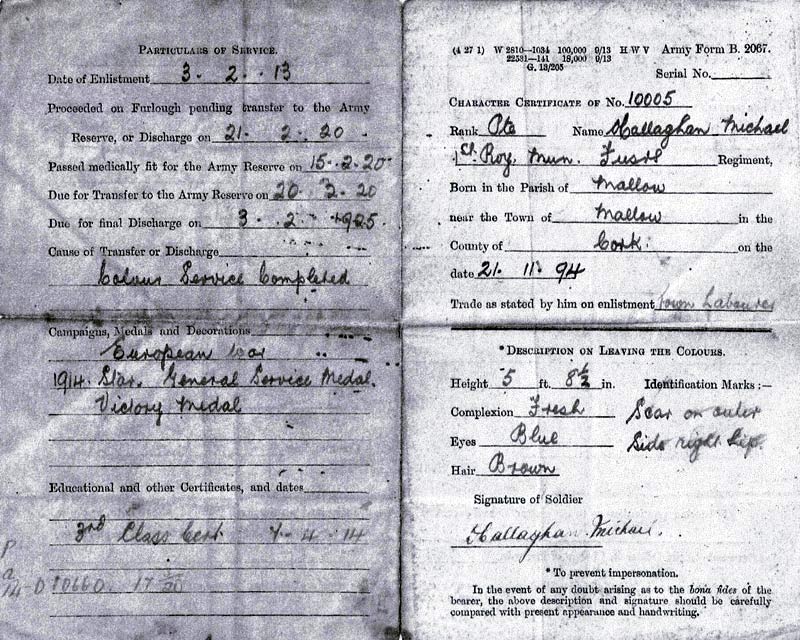 PARTICULARS OF SERVICE.
Date of Enlistment 3 . 2 . 13
Proceeded on Furlough pending transfer to the Army
Reserve, or Discharge on 21 . 2 . 20 .
Passed medically fit for the Army Reserve on 15 . 2 . 20
Due for Transfer to the Army Reserve on 20 2 . 20
Due for final Discharge on 3 . 2 . 1925.
Cause of Transfer or Discharge
Colour Service Completed
Campaigns, Medals and Decorations
European War
1914. Star. General Service Medal.
Victory Medal
Educational and other Certificates, and dates
3rd Class Cert. 4 . 14
(4 27 1) W 2810—1034 100,000 9/13 H W V Army Form B. 2067.
22531—141 18,000 9/13
G. 13/205
Serial No.
CHARACTER CERTIFICATE OF No. 10005
Rank Pte Name O'Callaghan Michael
1st Roy. Mun. Fusrs Regiment,
Born in the Parish of Mallow
near the Town of Mallow in the
County of Cork. on the
date 21. 11. 94
Trade as stated by him on enlistment Town Labourer
*DESCRIPTION ON LEAVING THE COLOURS.
Height 5 ft. 8½ in. Identification Marks:—
Complexion Fresh Scar on outer
Eyes Blue Side right
Hair Brown
Signature of Soldier
O'Callaghan Michael.
* To prevent impersonation.
In the event of any doubt arising as to the bona fides of the
bearer, the above description and signature should be carefully
compared with present appearance and handwriting.